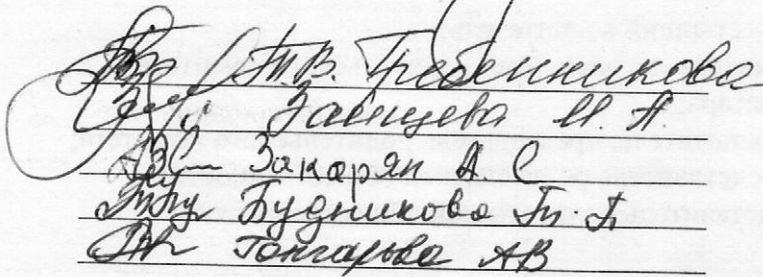 Т.В. Гребенникова
Зайцева И. А.
Закарян А С
Будникова Т. П
Гончарова АВ